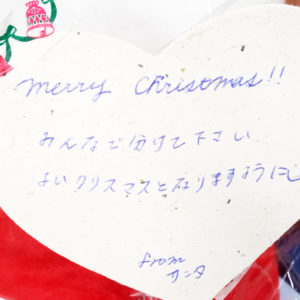 Merry Christmas!!
みんなで分けて下さい
よいクリスマスとなりますように
from